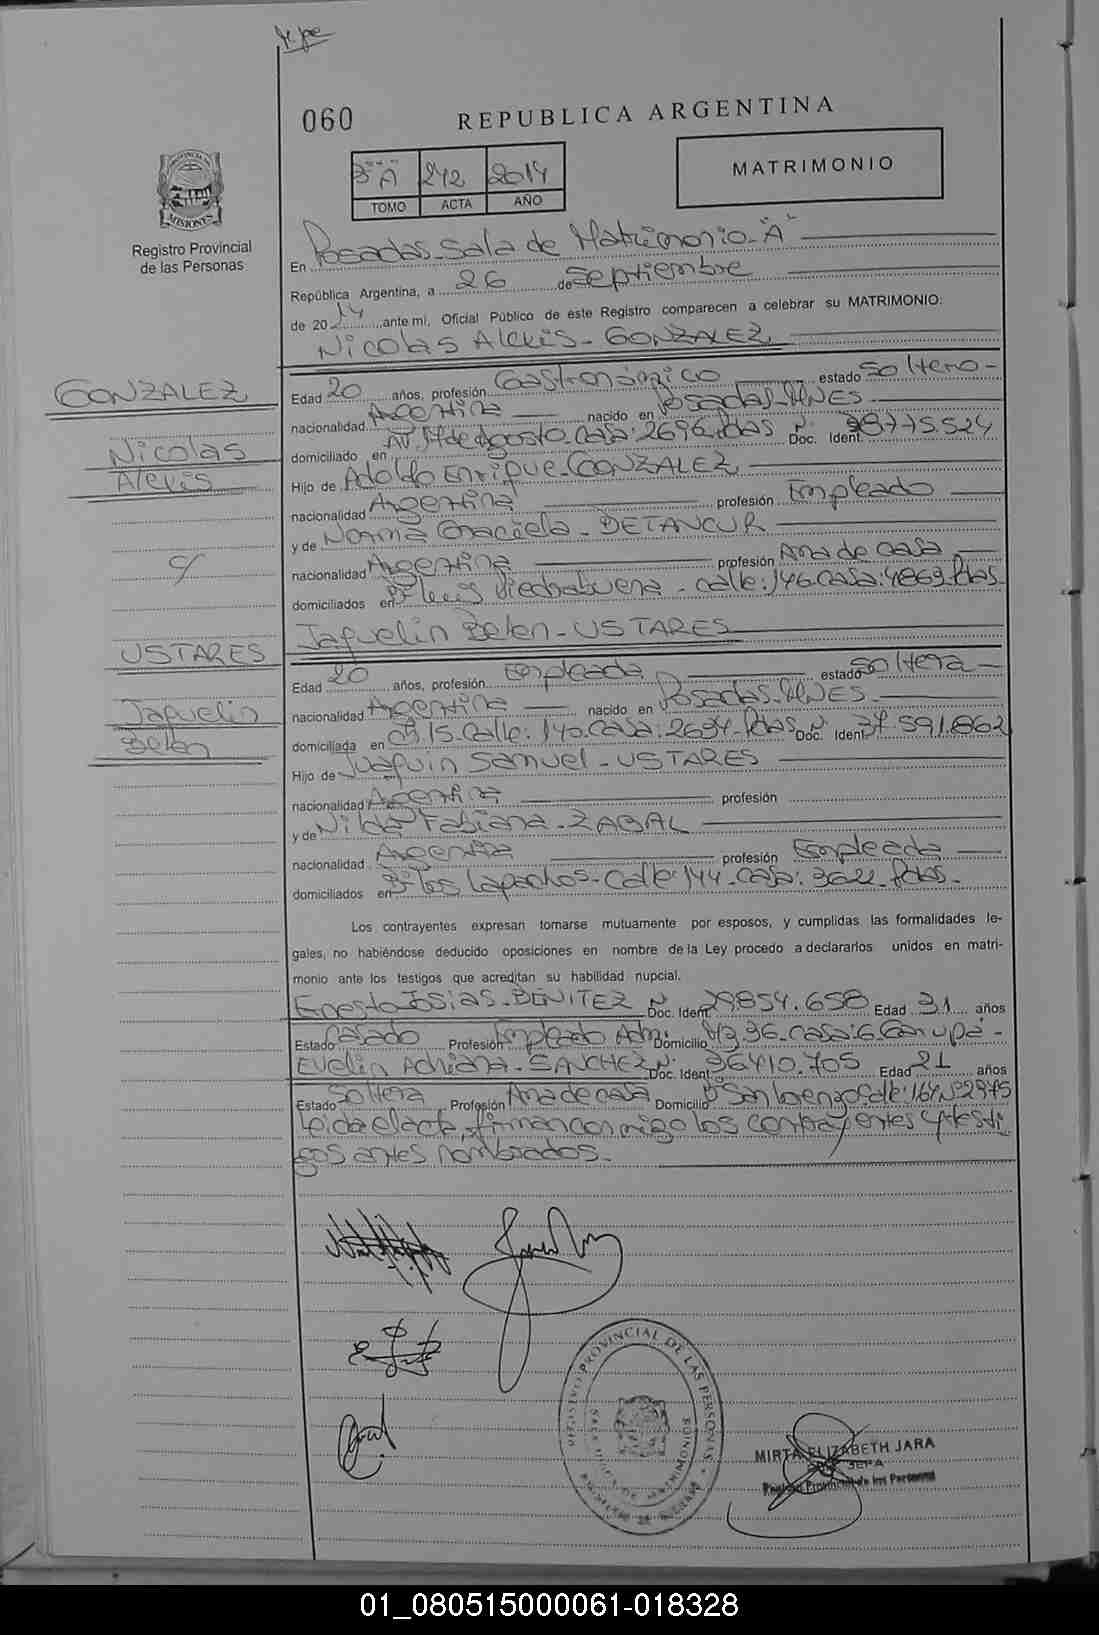 060
REPUBLICA ARGENTINA
MATRIMONIO
3º "A" 242 2014
TOMO ACTA AÑO
PROVINCIA DE MISIONES
Registro Provincial
de las Personas
En Posadas-Sala de Matrimonio-"A"
República Argentina, a 26 de Septiembre
de 2014 ante mi, Oficial Público de este Registro comparecen a celebrar su MATRIMONIO:
Nicolas Alexis-GONZALEZ
GONZALEZ
Nicolas
Alexis
c/
USTARES
Jaquelin
Belen
Edad 20 años, profesión Gastronómico estado Soltero-
nacionalidad Argentina nacido en Posadas-MNES
domiciliado en Av. 17 de Agosto-Casa: 2696-Pdas Doc. Ident. 38775524
Hijo de Adolfo Enrique-GONZALEZ
nacionalidad Argentina profesión Empleado
y de Norma Graciela-BETANCUR
nacionalidad Argentina profesión Ama de casa
domiciliados en Bº Luis Piedrabuena-calle: 146-casa: 4863-Pdas-
Jaquelin Belen-USTARES
Edad 20 años, profesión Empleada estado Soltera-
nacionalidad Argentina nacido en Posadas-MNES
domiciliada en Ch. 15-Calle: 140-Casa: 2694-Pdas Doc. Ident. 37.591.862
Hijo de Juaquin Samuel-USTARES
nacionalidad Argentina profesión
y de Nilda Fabiana-ZABAL
nacionalidad Argentina profesión Empleada
domiciliados en Bº los Lapachos-Calle: 144-Casa: 3622-Pdas-
Los contrayentes expresan tomarse mutuamente por esposos, y cumplidas las formalidades le-
gales, no habiéndose deducido oposiciones en nombre de la Ley procedo a declararlos unidos en matri-
monio ante los testigos que acreditan su habilidad nupcial.
Enesto Isias-BENITEZ Doc. Ident. 29.854.658 Edad 31 años
Estado Casado Profesión Empleado Adm. Domicilio Mz 36-Casa: 6-Garupá-
Evelin Adriana-SANCHEZ Doc. Ident. 36410.705 Edad 21 años
Estado Soltera Profesión Ama de casa Domicilio Bº San Lorenzo-Calle: 164 Nº 2975
Leida el acta, firman conmigo los contrayentes y testi-
gos antes nombrados.-
REGISTRO PROVINCIAL DE LAS PERSONAS
MIRTA ELIZABETH JARA
Registro Provincial de las Personas
01_080515000061-018328